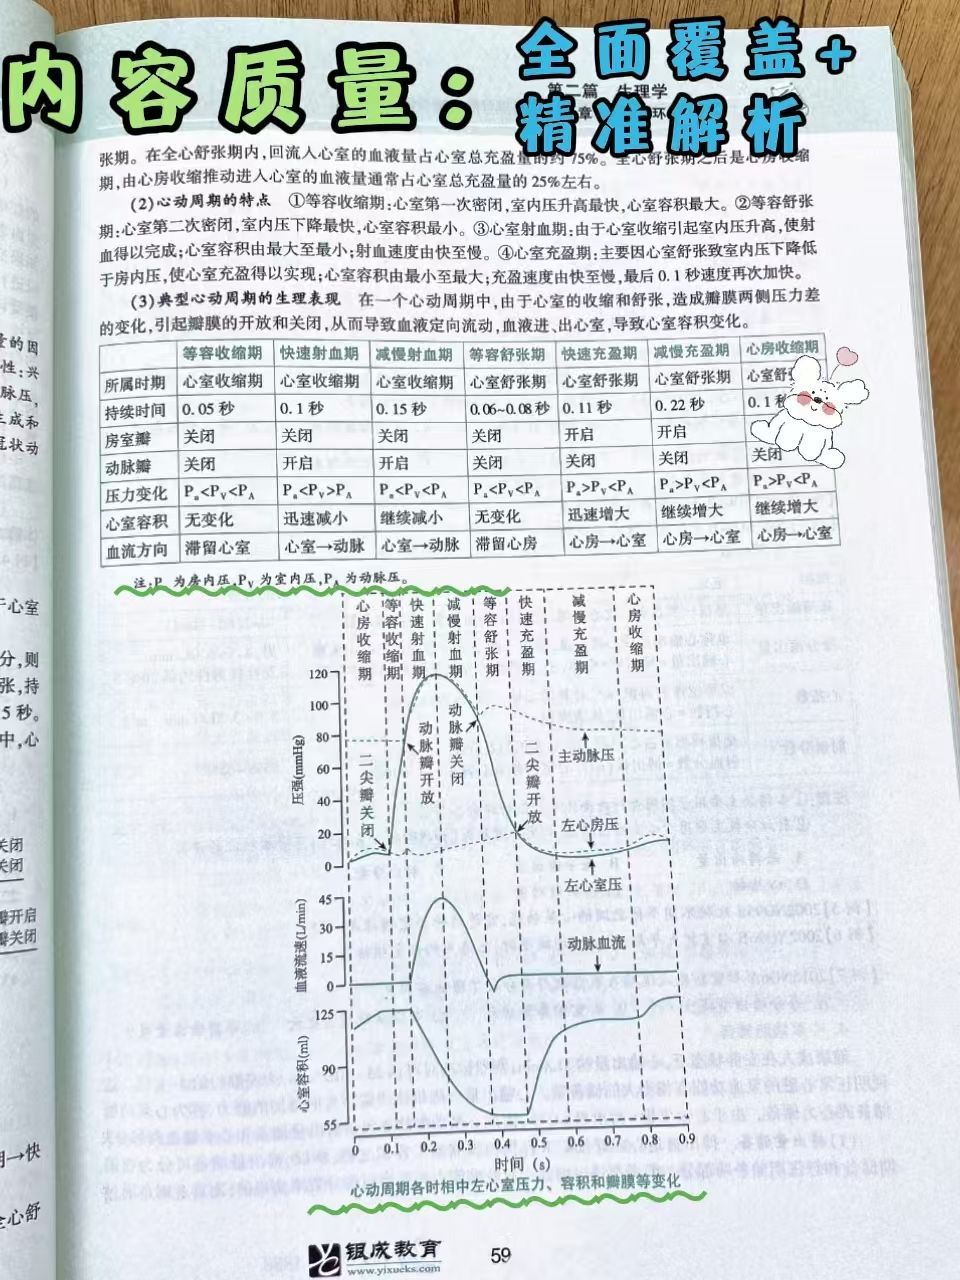 内容质量：
全面覆盖+
精准解析
第二篇 生理学
张期。在全心舒张期内,回流入心室的血液量占心室总充盈量的约75%。全心舒张期之后是心房收缩
期,由心房收缩推动进入心室的血液量通常占心室总充盈量的25%左右。
(2)心动周期的特点 ①等容收缩期:心室第一次密闭,室内压升高最快,心室容积最大。②等容舒张
期:心室第二次密闭,室内压下降最快,心室容积最小。③心室射血期:由于心室收缩引起室内压升高,使射
血得以完成;心室容积由最大至最小;射血速度由快至慢。④心室充盈期:主要因心室舒张致室内压下降低
于房内压,使心室充盈得以实现;心室容积由最小至最大;充盈速度由快至慢,最后0.1秒速度再次加快。
(3)典型心动周期的生理表现 在一个心动周期中,由于心室的收缩和舒张,造成瓣膜两侧压力差
的变化,引起瓣膜的开放和关闭,从而导致血液定向流动,血液进、出心室,导致心室容积变化。
等容收缩期 快速射血期 减慢射血期 等容舒张期 快速充盈期 减慢充盈期 心房收缩期
所属时期 心室收缩期 心室收缩期 心室收缩期 心室舒张期 心室舒张期 心室舒张期 心室舒
持续时间 0.05秒 0.1秒 0.15秒 0.06~0.08秒 0.11秒 0.22秒 0.1
房室瓣 关闭 关闭 关闭 关闭 开启 开启
动脉瓣 关闭 开启 开启 关闭 关闭 关闭 关闭
压力变化 Pa<PV<PA Pa<PV>PA Pa<PV<PA Pa<PV<PA Pa>PV<PA Pa>PV<PA Pa>PV<PA
心室容积 无变化 迅速减小 继续减小 无变化 迅速增大 继续增大 继续增大
血流方向 滞留心室 心室→动脉 心室→动脉 滞留心房 心房→心室 心房→心室 心房→心室
注:Pa 为房内压,PV 为室内压,PA 为动脉压。
心房收缩期 等容收缩期 快速射血期 减慢射血期 等容舒张期 快速充盈期 减慢充盈期 心房收缩期
压强(mmHg)
120
100
80
60
40
20
0
二尖瓣关闭
动脉瓣开放
动脉瓣关闭
二尖瓣开放
主动脉压
左心房压
左心室压
血液流速(L/min)
45
30
15
0
动脉血流
心室容积(ml)
125
90
55
0 0.1 0.2 0.3 0.4 0.5 0.6 0.7 0.8 0.9
时间(s)
心动周期各时相中左心室压力、容积和瓣膜等变化
银成教育
www.yixueks.com
59